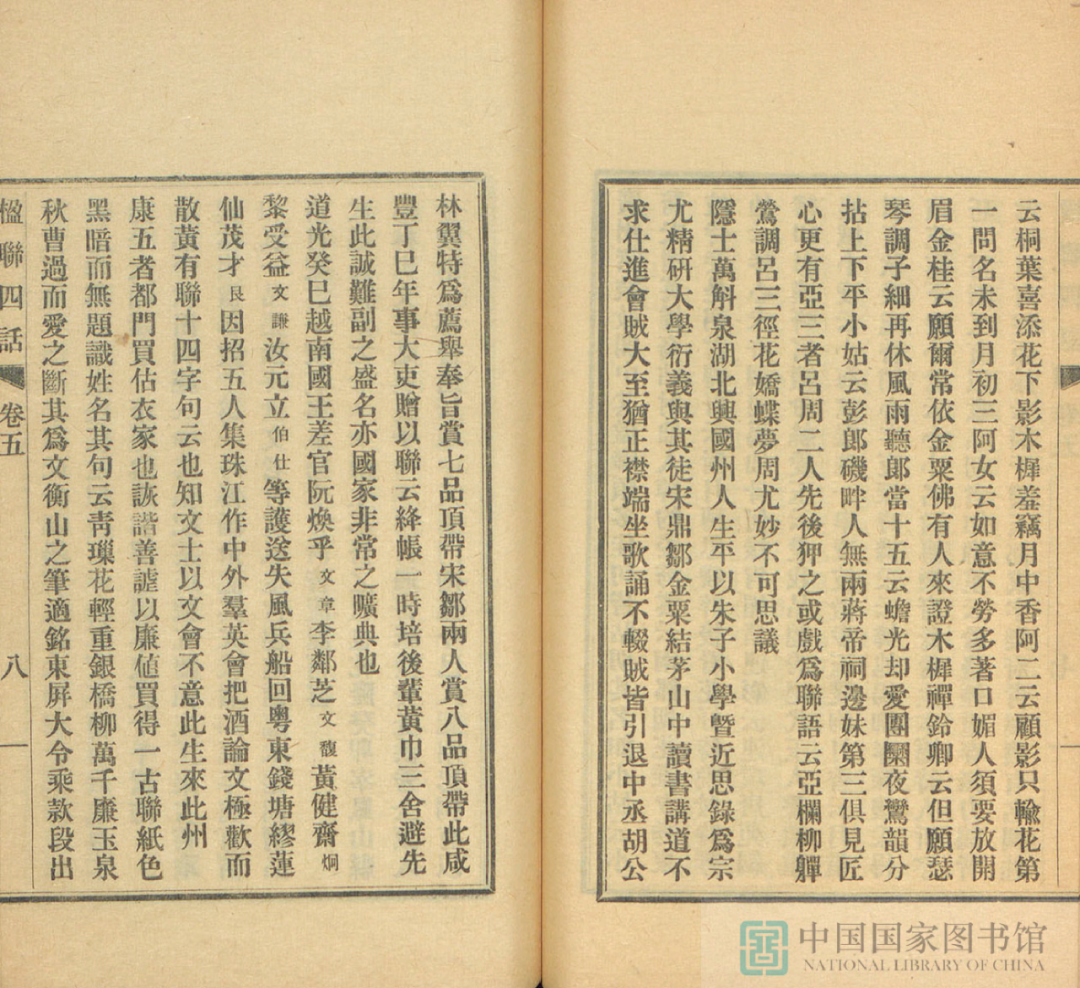 云桐葉喜添花下影木樨羞竊月中香阿二云顧影只輸花第
一問名未到月初三阿女云如意不勞多著口媚人須要放開
眉金桂云願爾常依金粟佛有人來證木樨禪鈴卿云但願瑟
琴調子細再休風雨聽郎當十五云蟾光却愛團圞夜鸞韻分
拈上下平小姑云彭郎磯畔人無兩蔣帝祠邊妹第三俱見匠
心更有亞三者呂周二人先後狎之或戲爲聯語云亞欄柳軃
鶯調呂三徑花嬌蝶夢周尤妙不可思議
隱士萬斛泉湖北興國州人生平以朱子小學暨近思錄爲宗
尤精研大學衍義與其徒宋鼎鄒金粟結茅山中讀書講道不
求仕進會賊大至猶正襟端坐歌誦不輟賊皆引退中丞胡公
林翼特爲薦舉奉旨賞七品頂帶宋鄒兩人賞八品頂帶此咸
豐丁巳年事大吏贈以聯云絳帳一時培後輩黃巾三舍避先
生此誠難副之盛名亦國家非常之曠典也
道光癸巳越南國王差官阮煥乎文章李鄰芝文馥黃健齋炯
黎受益文謙汝元立伯仕等護送失風兵船回粵東錢塘繆蓮
仙茂才艮因招五人集珠江作中外羣英會把酒論文極歡而
散黃有聯十四字句云也知文士以文會不意此生來此州
康五者都門買估衣家也詼諧善謔以廉値買得一古聯紙色
黑暗而無題識姓名其句云靑瓃花輕重銀橋柳萬千廉玉泉
秋曹過而愛之斷其爲文衡山之筆適銘東屏大令乘款段出
楹聯四話 卷五 八
中国国家图书馆
NATIONAL LIBRARY OF CHINA